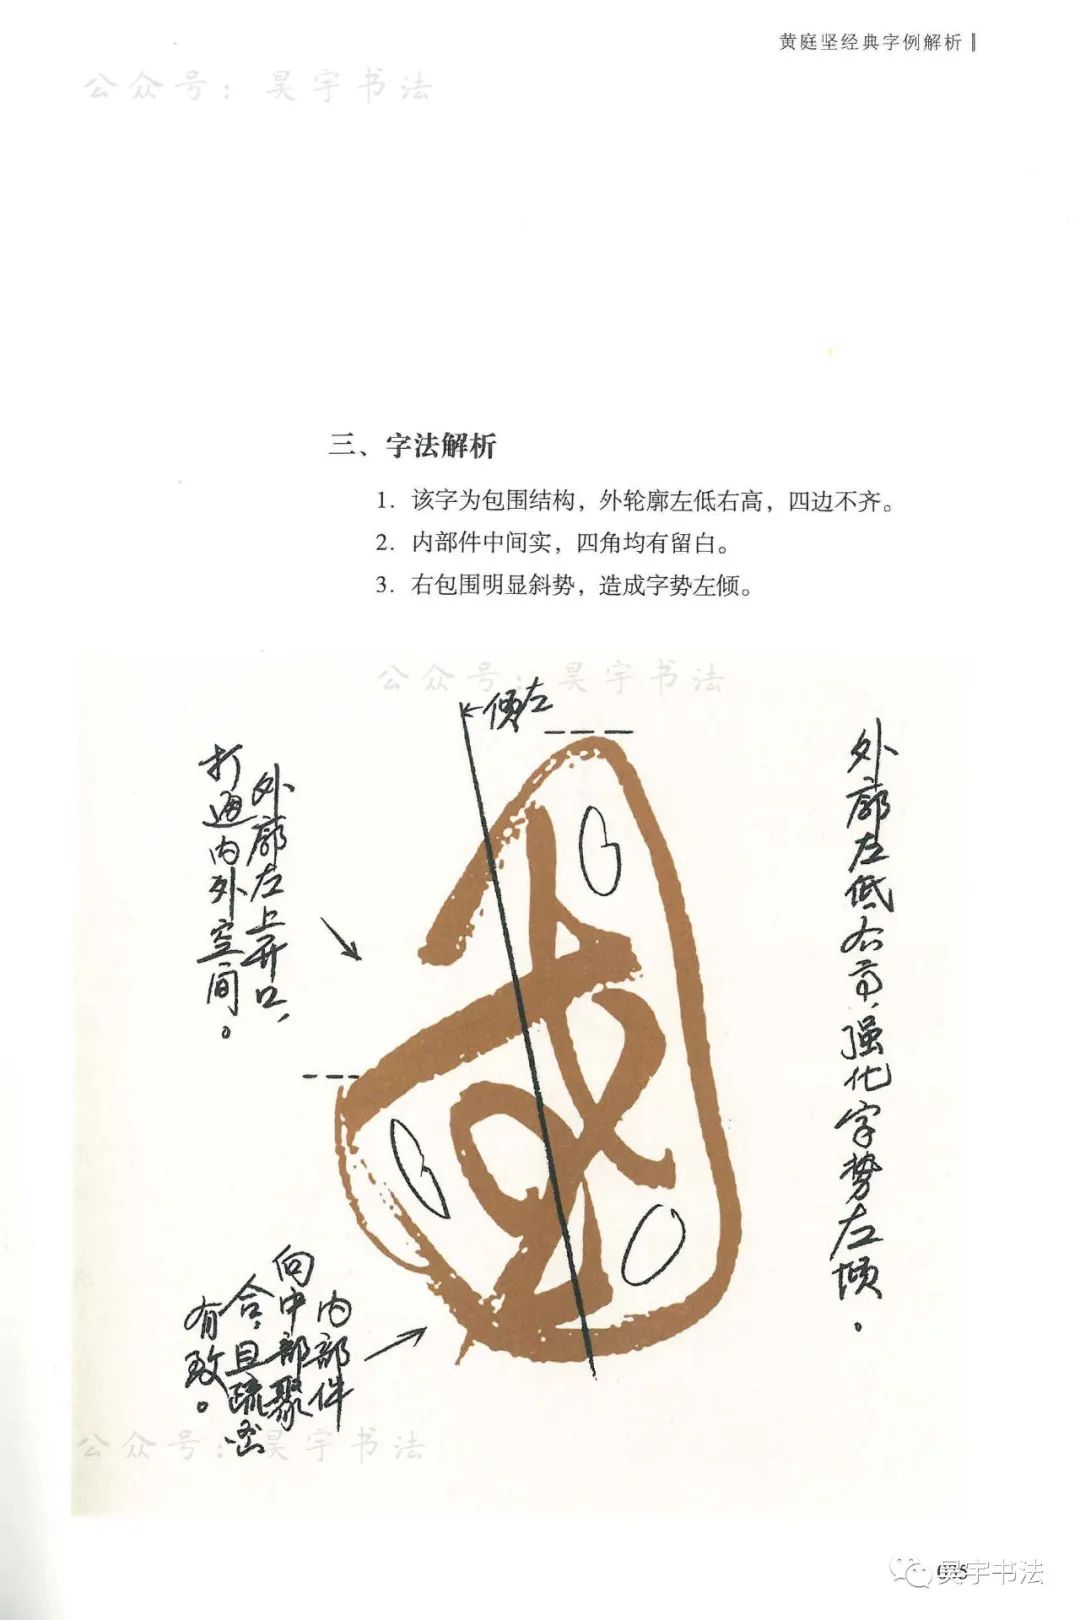 黄庭坚经典字例解析
公众号：昊宇书法
三、字法解析
1. 该字为包围结构，外轮廓左低右高，四边不齐。
2. 内部件中间实，四角均有留白。
3. 右包围明显斜势，造成字势左倾。
公众号：昊宇书法
左倾
外廓左低右高，强化字势左倾。
外廓左上开口，
打通内外空间。
内部件
向中部聚
合，且疏密
有致。
公众号：昊宇书法
昊宇书法